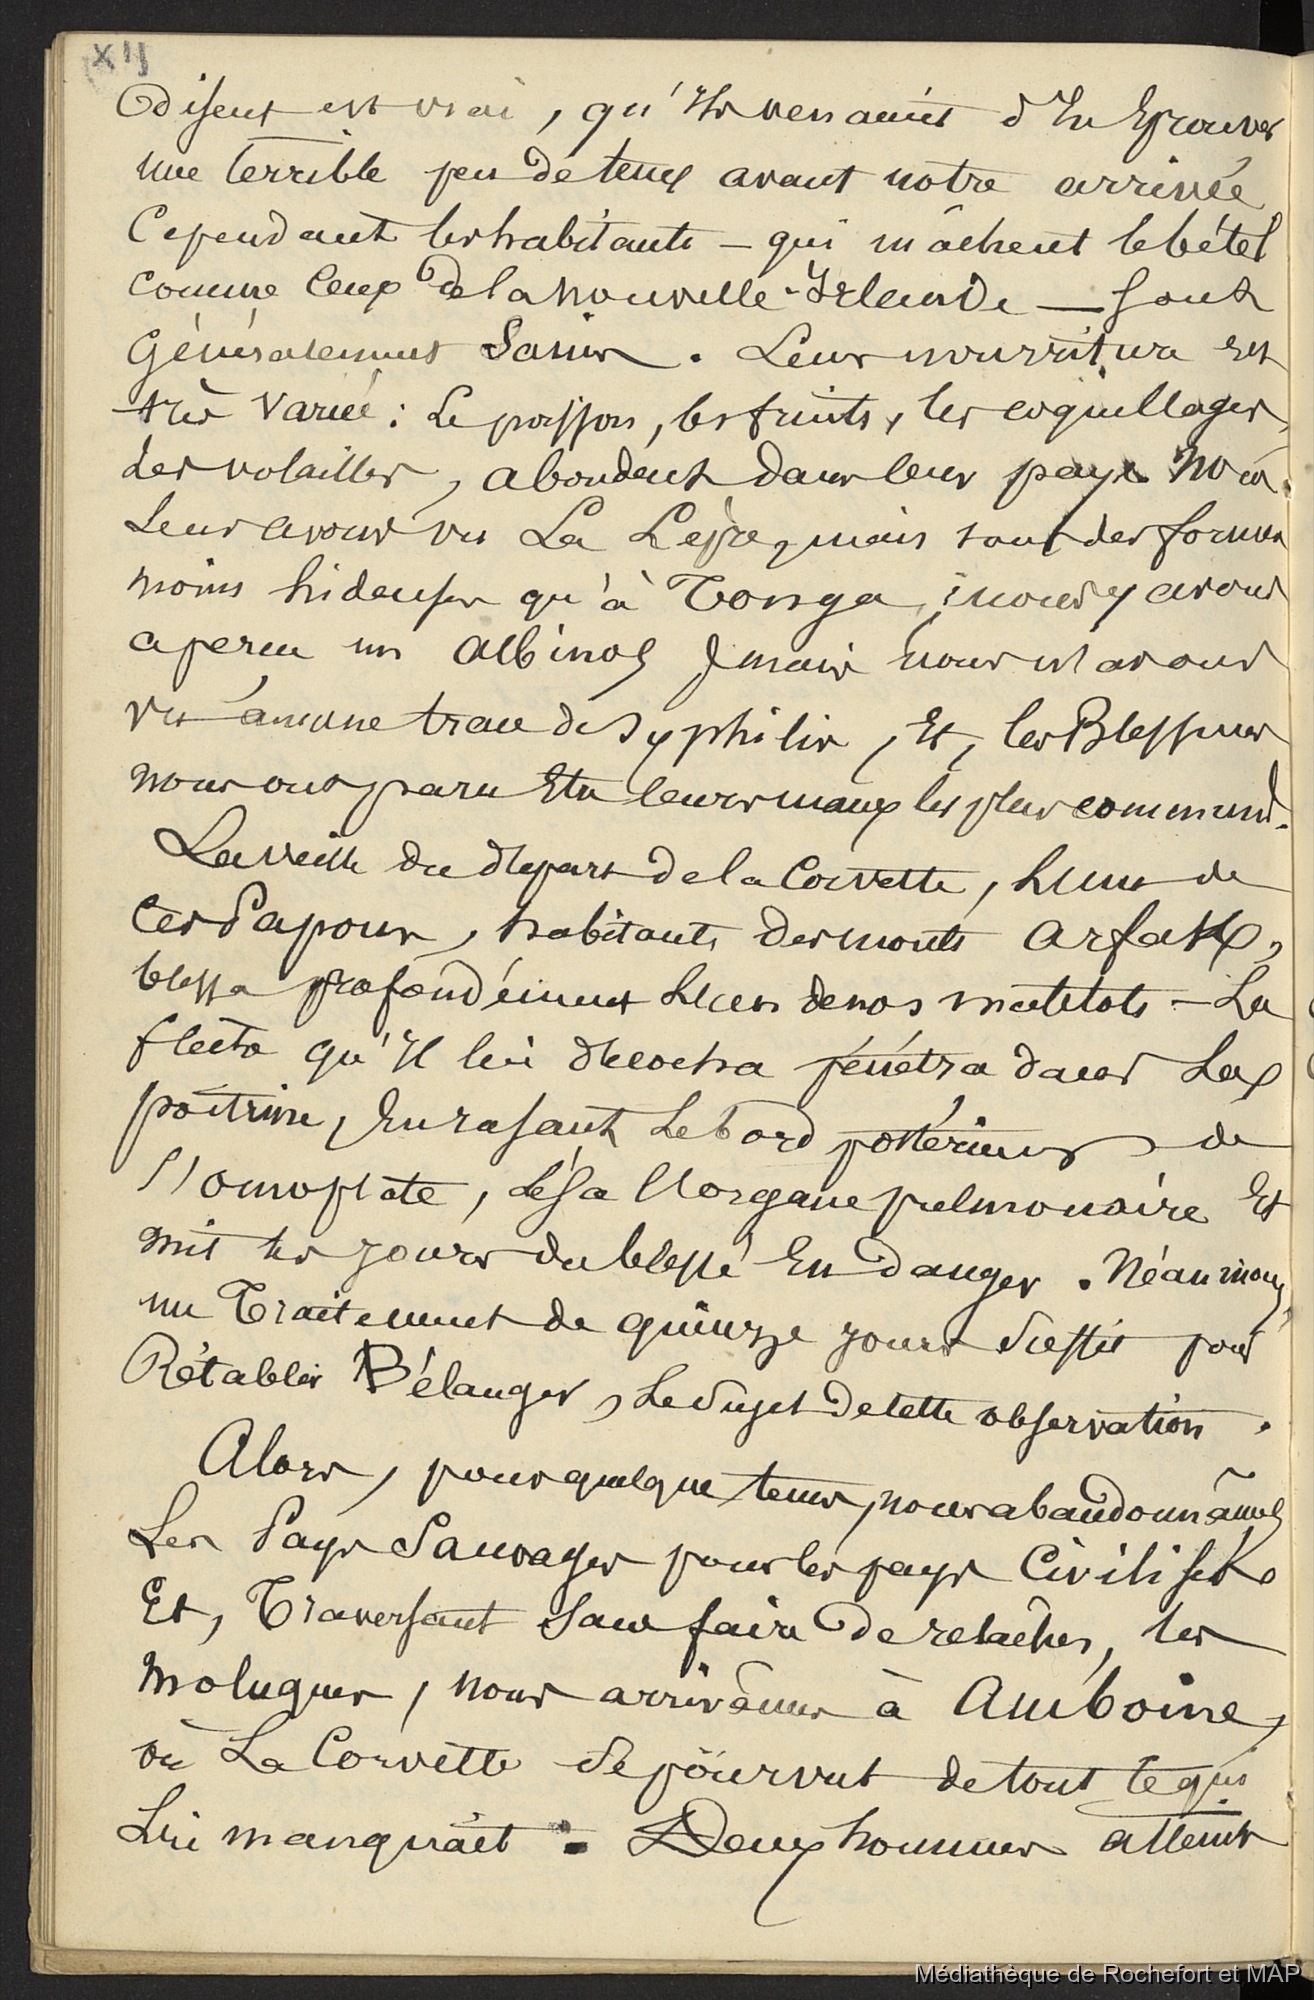 XIJ
disent est vrai, qu'Ils venaient d'En Eprouver
une terrible peu de temps avant notre arrivée
Cependant les habitants – qui mâchent le bétel
comme Ceux de la Nouvelle-Irlande — Sont
Généralement Sains. Leur nourriture est
très variée : Le poisson, les fruits, les coquillages,
Les volailles, abondent dans leur pays. Nous
Leur avons vu La Lèpre, mais sous des formes
moins hideuses qu'à Tonga ; nous y avons
aperçu un Albinos, mais nous n'avons
vu aucune trace de Syphilis, Et, les Blessures
nous ont paru Etre leurs maux les plus communs.
La veille du départ de la Corvette, L'un de
Ces Papous, habitants des monts Arfak,
blessa profondément L'un de nos matelots – La
flèche qu'Il lui décocha pénétra dans La
poitrine, En rasant Le bord postérieur de
l'omoplate, Lésa l'organe pulmonaire Et
mit les jours du blessé En danger. Néanmoins
un Traitement de quinze jours Suffit pour
Rétablir Bélanger, Le Sujet de cette observation.
Alors, pour quelque temps, nous abandonnâmes
Les Pays Sauvages pour les pays Civilisés
Et, Traversant Sans faire de relâches, les
Moluques, nous arrivâmes à Amboine,
où La Corvette Se pourvut de tout ce qui
Lui manquait. Deux hommes atteints
Médiathèque de Rochefort et MAP